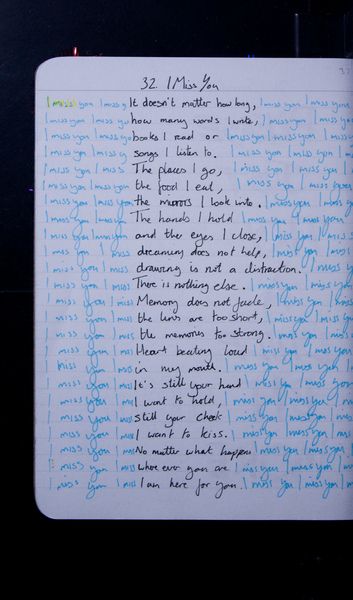 32. I Miss You
I miss you I miss y It doesn't matter how long, I miss you I miss you
I miss you I miss yo how many words I write, I miss you I miss
I miss you I miss yo books I read or I miss you I miss you I miss
I miss you I miss y songs I listen to. I miss you I miss you I m
I miss you I miss The places I go, I miss you I miss you I
I miss you I miss the food I eat, I miss you I miss you
I miss you I miss you the mirrors I look into. I miss you I miss
I miss you I miss you The hands I hold I miss you I miss you
I miss you I miss you and the eyes I close, I miss you I miss
I miss you I miss dreaming does not help, I miss you I miss
I miss you I miss drawing is not a distraction. I miss y
I miss you I miss There is nothing else. I miss you I miss you
I miss you I miss Memory does not fade, I miss you I miss
I miss you I miss the lines are too short, I miss you I miss
I miss you I miss the memories too strong. I miss you I miss
I miss you I miss Heart beating loud I miss you I miss you
I miss you I miss in my mouth. I miss you I miss you I m
I miss you I miss It's still your hand I miss you I miss you
I miss you I miss I want to hold, I miss you I miss you I
I miss you I miss still your cheek I miss you I miss you I miss
I miss you I miss I want to kiss. I miss you I miss you I miss
I miss you I miss No matter what happens I miss you I miss you
I miss you I miss where ever you are I miss you I miss you I
I miss you I miss I am here for you. I miss you I miss you I